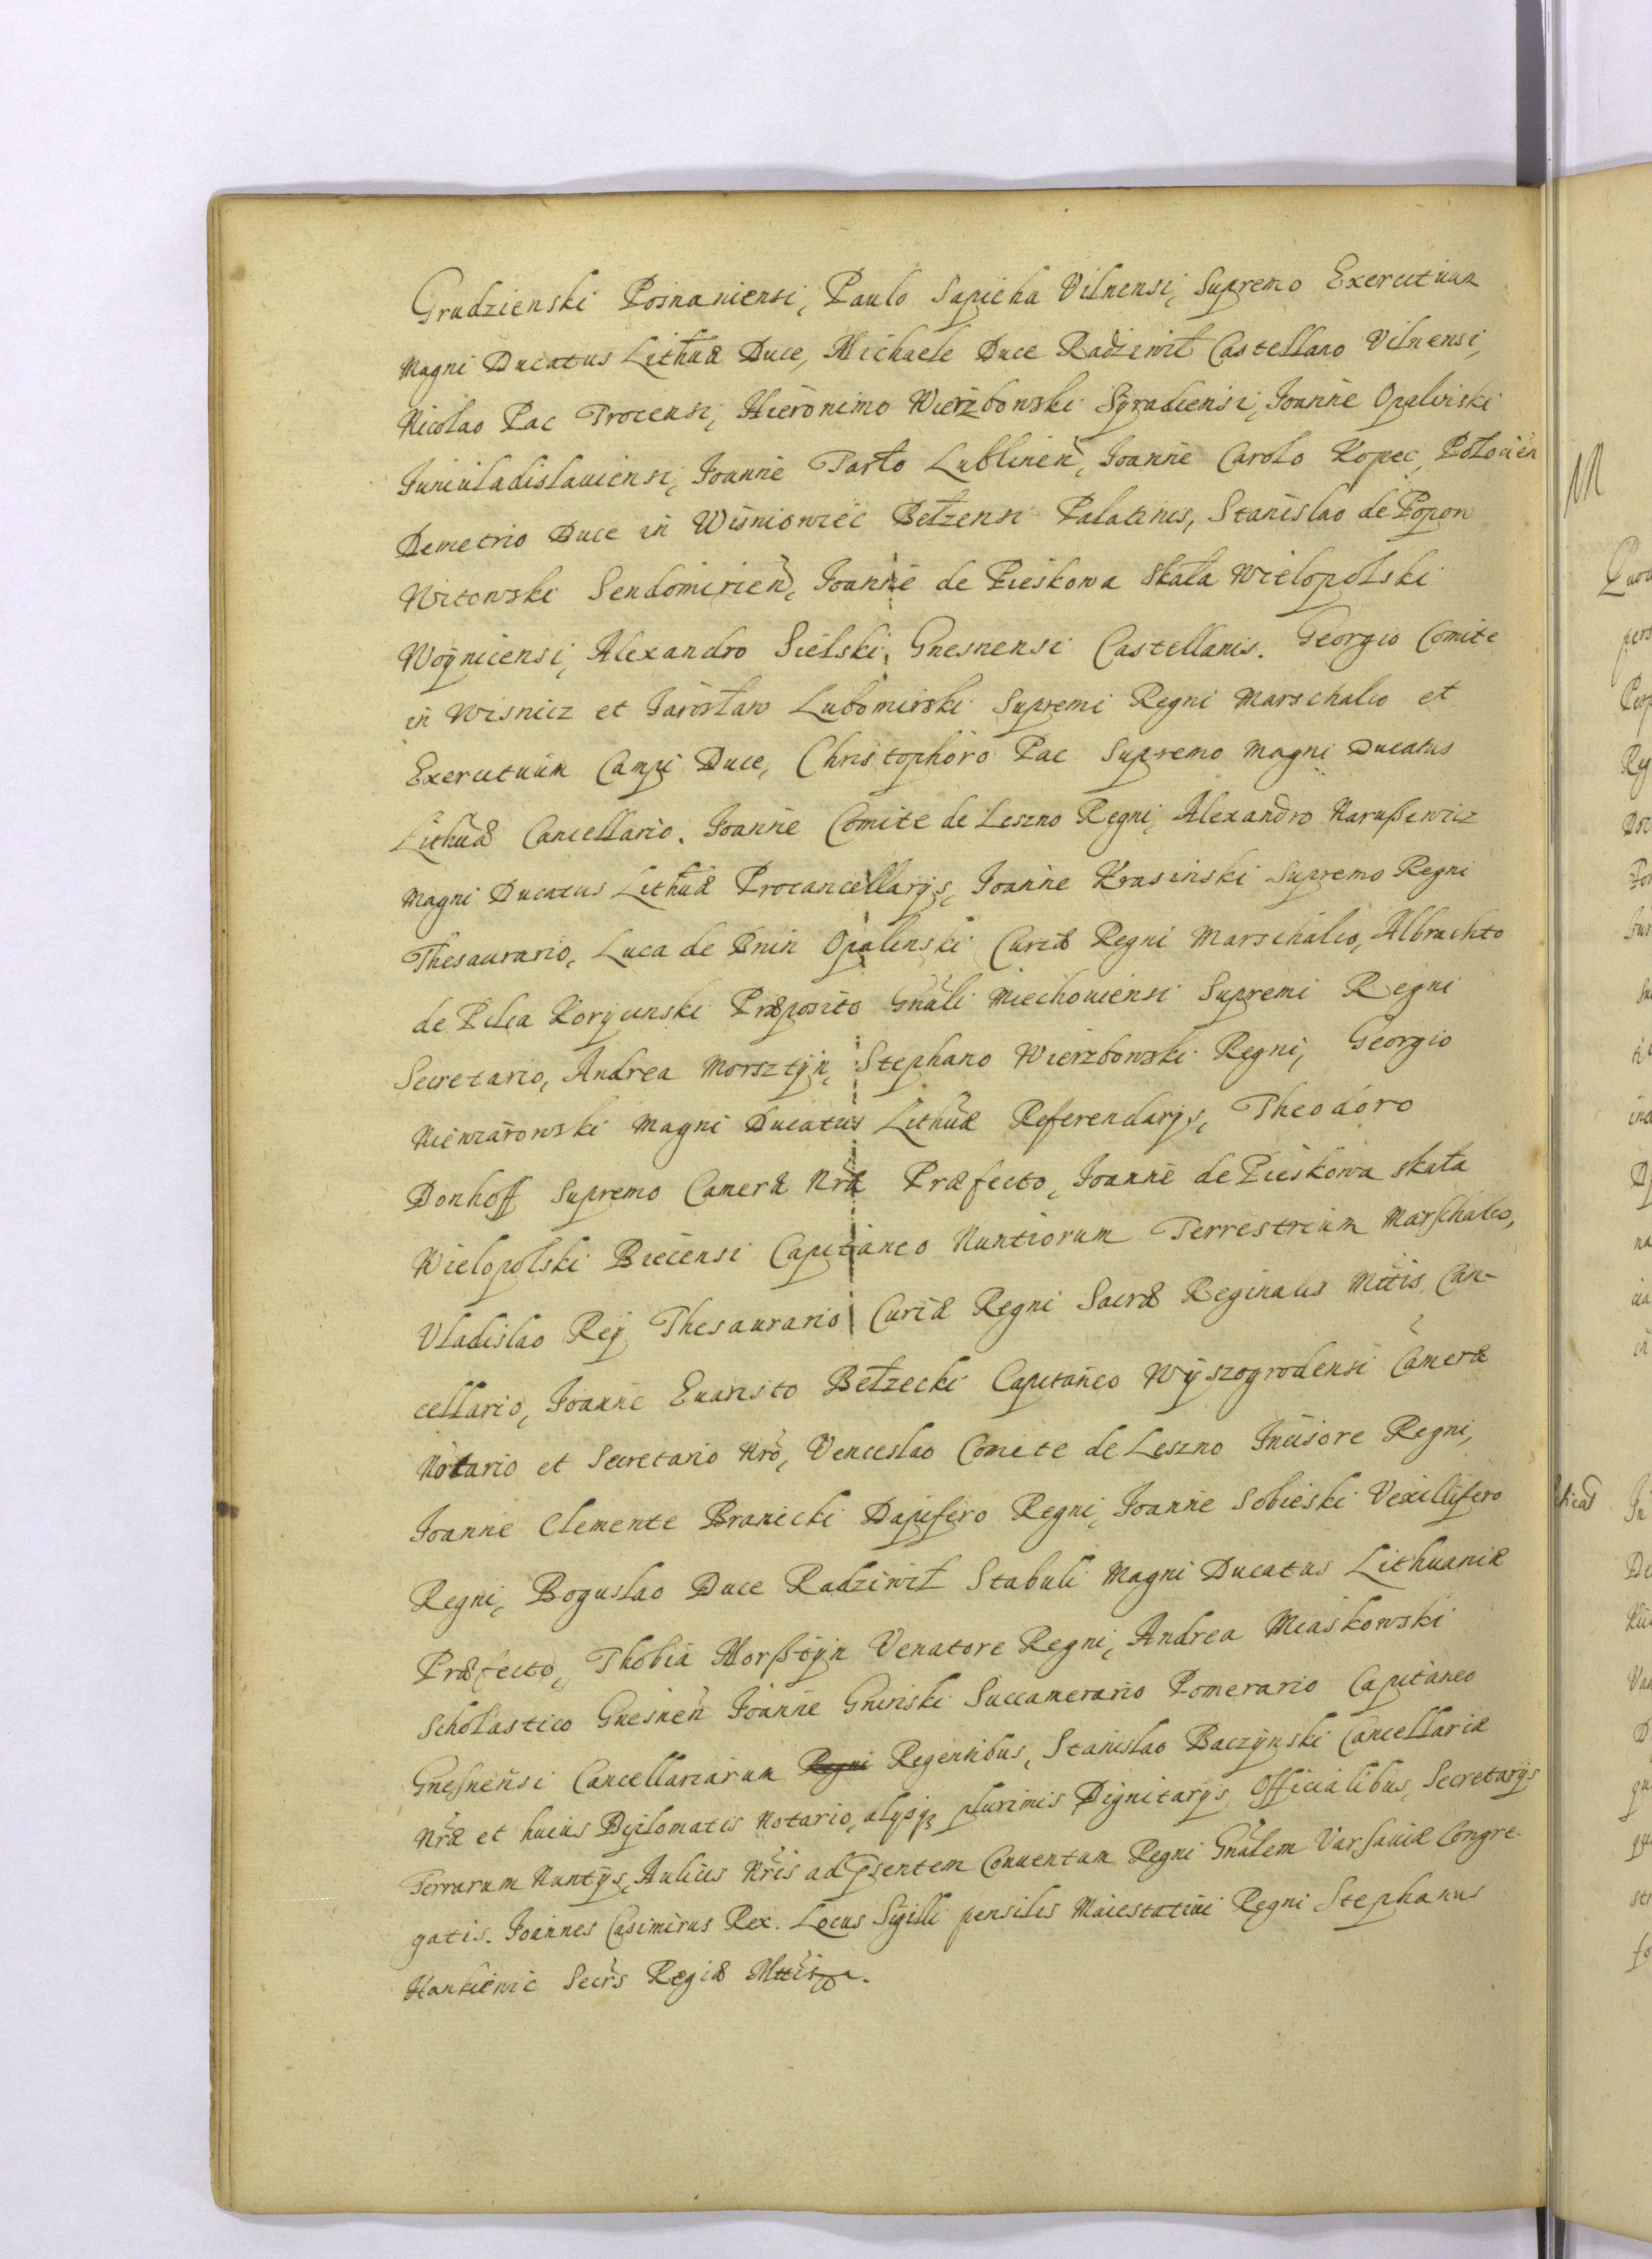 Grudzienski Posnaniensi, Paulo Sapieha Vilnensi, Supremo Exercituum
Magni Ducatus Lithuæ Duce, Michaele Duce Radziwił Castellano Vilnensi,
Nicolao Pac Trocensi, Hieronimo Wierzbowski Syradiensi, Joanne Opalinski
Juniuladislauiensi, Joanne Tarło Lublinen, Joanne Carolo Kopec, Połocien
Demetrio Duce in Wisniowiec Bełzensi Palatinis, Stanislao de Popow
Witowski Sendomirien, Joanne de Pieskowa Skała Wielopolski
Woynicensi, Alexandro Sielski, Gnesnensi Castellanis. Georgio Comite
in Wisnicz et Jarosław Lubomirski Supremi Regni Marschalco et
Exercituum Campi Duce, Christophoro Pac Supremo Magni Ducatus
Lithuæ Cancellario. Joanne Comite de Leszno Regni, Alexandro Narußewicz
Magni Ducatus Lithuæ Procancellarys, Joanne Krasinski Supremo Regni
Thesaurario, Luca de Bnin Opalinski Curiæ Regni Marschalco, Albrachto
de Pilca Korycinski Præposito Gnãli Miechouiensi Supremi Regni
Secretario, Andrea Morsztyn, Stephano Wierzbowski Regni, Georgio
Niewiarowski Magni Ducatus Lithuæ Referendarys, Theodoro
Donhoff Supremo Cameræ Nræ Præfecto, Joanne de Pieskowa skała
Wielopolski Biecensi Capitaneo Nuntiorum Terrestrium Marschalco,
Vladislao Rey Thesaurario Curiæ Regni Sacræ Reginalis Mttis Can-
cellario, Joanne Euaristo Bełzecki Capitaneo Wyszogrodensi Cameræ
Notario et Secretario Nro, Venceslao Comite de Leszno Incisore Regni,
Joanne Clemente Branicki Dapifero Regni, Joanne Sobieski Vexillifero
Regni, Boguslao Duce Radziwił Stabuli Magni Ducatus Lithuaniæ
Præfecto, Thobia Morßtyn Venatore Regni, Andrea Miaskowski
Scholastico Gnesnen Joanne Gninski Succamerario Pomerario Capitaneo
Gnesnensi Cancellariarum Regni Regentibus, Stanislao Baczynski Cancellariæ
Nræ et huius Diplomatis Notario, alysq3 plurimis Dignitarys Officialibus, Secretarys
Terrarum Nuntys, Aulicis Nris ad psentem Conuentum Regni Gnãlem Varsauiæ Congre-
gatis. Joannes Casimirus Rex. Locus Sigilli pensilis Maiestatiui Regni Stephanus
Hankiewic Secrs Regiæ Mttis